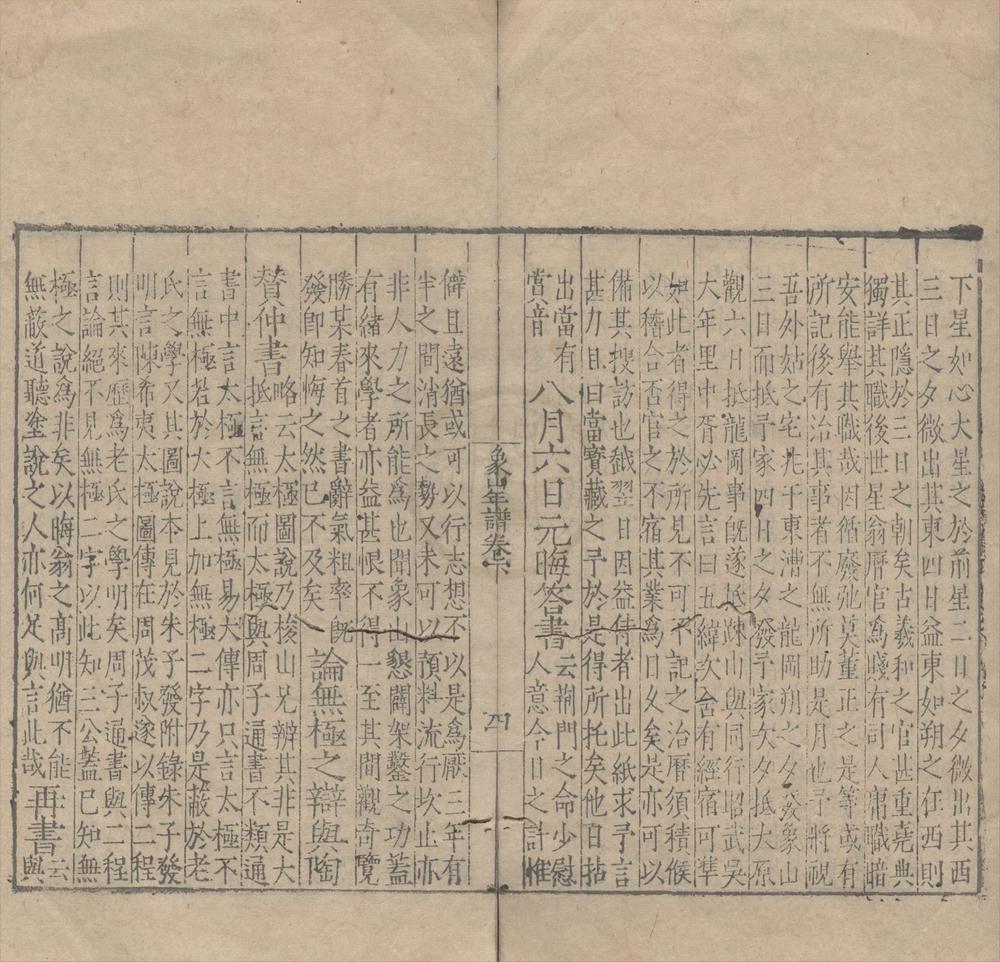 下星如心大星之於前星二日之夕微出其西
三日之夕微出其東四日益東如朔之在西則
其正隱於三日之朝矣古羲和之官甚重堯典
獨詳其職後世星翁曆官爲賤有司人庸職暗
安能舉其職哉因循廢弛莫董正之是等或有
所記後有治其事者不無所助是月也予將視
吾外姑之宅兆于東漕之龍岡朔之夕發象山
三日而抵予家四日之夕發予家矢夕抵大原
觀六日抵龍岡事旣遂抵疎山與同行昭武吳
大年里中胥必先言曰五緯次舍有經宿可準
如此者得之於所見不可不記之治曆須積候
以稽合否官之不宿其業爲日乆矣是亦可以
備其搜訪也戲翌日因益侍者出此紙求予言
甚力且曰當寳藏之予於是得所托矣他日拈
出當有賞音
八月六日元晦答書
云荊門之命少慰人意今日之計惟
象山年譜卷下
四
僻且遠猶或可以行志想不以是爲厭三年有
半之間消長之勢又未可以預料流行坎止亦
非人力之所能爲也聞象山懇闢架鑿之功葢
有緒來學者亦益甚恨不得一至其間觀奇覽
勝某春首之書辭氣粗率旣發卽知悔之然已不及矣
論無極之辯與陶
賛仲書
略云太極圖說乃梭山兄辨其非是大抵言無極而太極與周子通書不類通
書中言太極不言無極易大傳亦只言太極不
言無極若於太極上加無極二字乃是蔽於老
氏之學又其圖說本見於朱子發附錄朱子發
明言陳希夷太極圖傳在周茂叔遂以傳二程
則其來歷爲老氏之學明矣周子通書與二程
言論絕不見無極二字以此知三公葢已知無
極之說爲非矣以晦翁之高明猶不能無蔽道聽塗說之人亦何足與言此哉
再書
云與